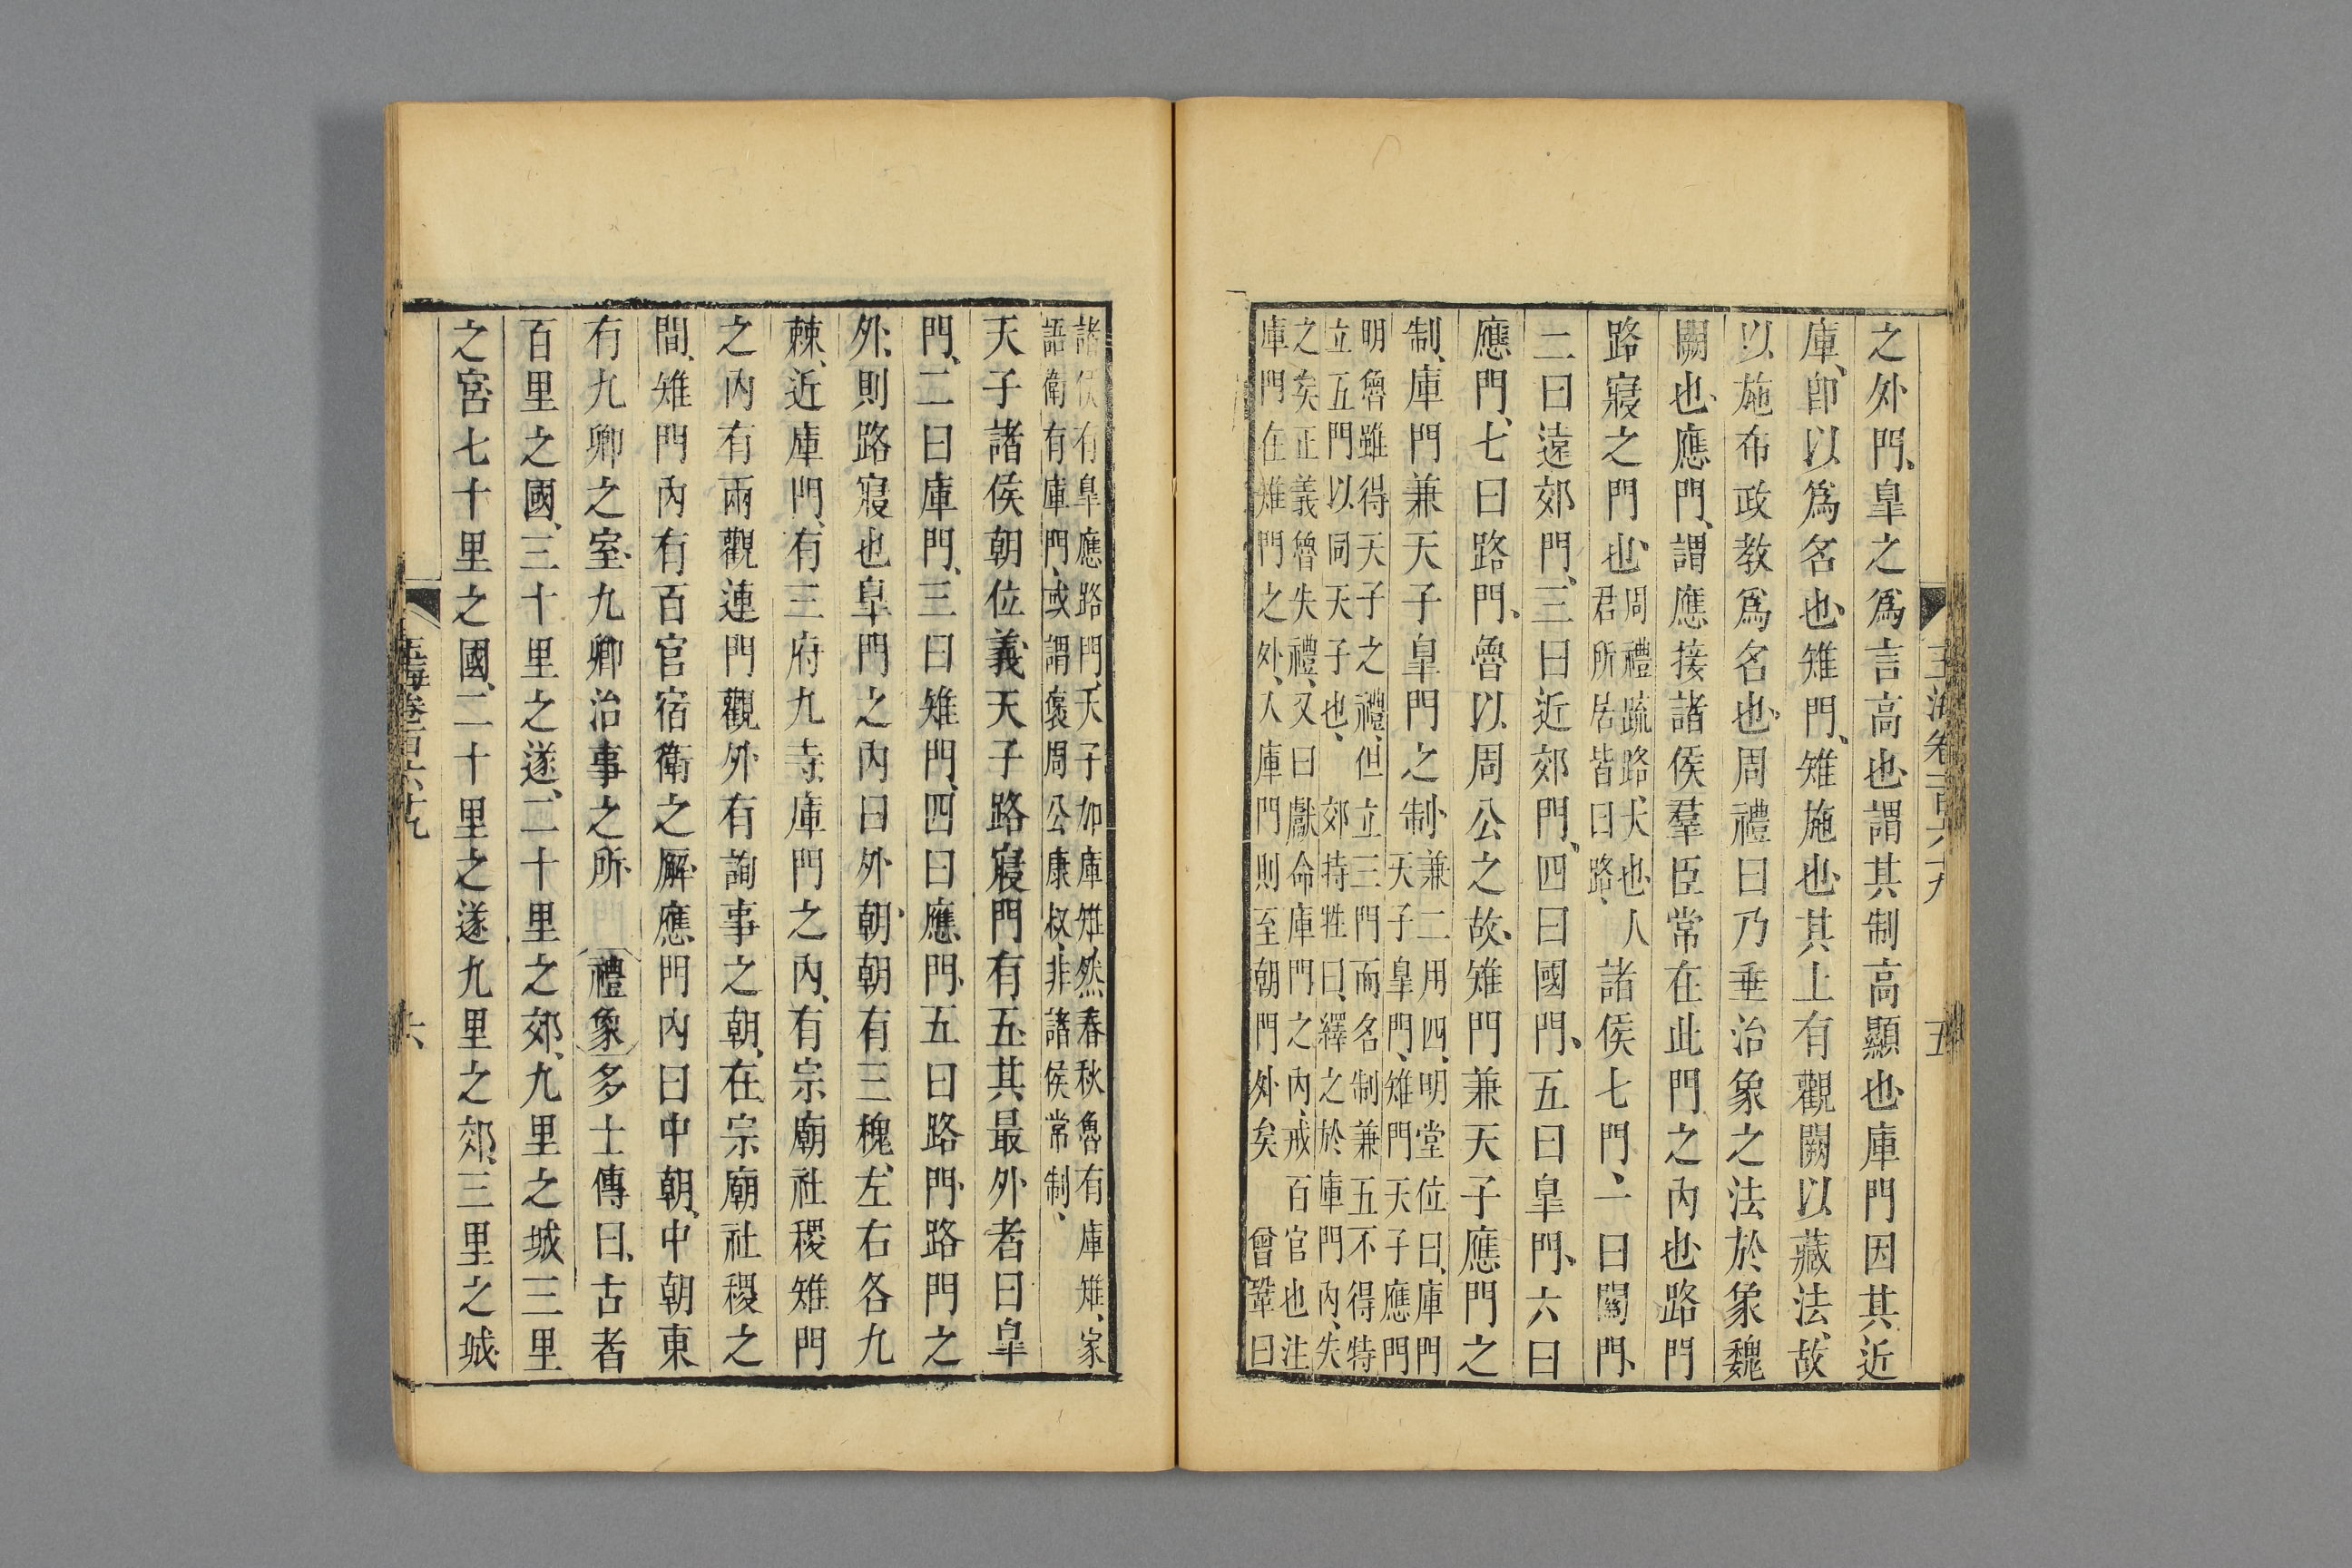 之外門、臯之爲言高也、謂其制高顯也、庫門因其近
庫、卽以爲名也、雉門、雉施也、其上有觀闕以藏法、故
以施布政教爲名也、周禮曰乃垂治象之法於象魏
闕也、應門、謂應接諸侯羣臣常在此門之內也、路門
路寢之門也、周禮疏路、大也、人君所居皆曰路、諸侯七門、一曰關門、
二曰遠郊門、三曰近郊門、四曰國門、五曰臯門、六曰
應門、七曰路門、魯以周公之故、雉門兼天子應門之
制、庫門兼天子臯門之制、兼二用四、明堂位曰、庫門天子臯門、雉門天子應門
明魯雖得天子之禮、但立三門而名制兼五不得特
立五門以同天子也、郊特牲曰、繹之於庫門內、失
之矣正義魯失禮、又曰獻命庫門之內、戒百官也注
庫門在雉門之外、入庫門則至朝門外矣 曾鞏曰
玉海卷二百六十九 五
諸侯有臯應路門、天子加庫雉然春秋魯有庫雉、家
語衛有庫門、或謂襃周公康叔、非諸侯常制、
天子諸侯朝位義天子路寢門有五其最外者曰臯
門、二曰庫門、三曰雉門、四曰應門、五曰路門、路門之
外、則路寢也臯門之內曰外朝、朝有三槐、左右各九
棘、近庫門、有三府九寺、庫門之內、有宗廟社稷雉門
之內有兩觀連門觀外有詢事之朝、在宗廟社稷之
間、雉門內有百官宿衛之廨、應門內曰中朝、中朝東
有九卿之室、九卿治事之所、禮象多士傳曰、古者
百里之國、三十里之遂、二十里之郊、九里之城三里
之宮七十里之國、二十里之遂九里之郊、三里之城
玉海卷一百六十九 六